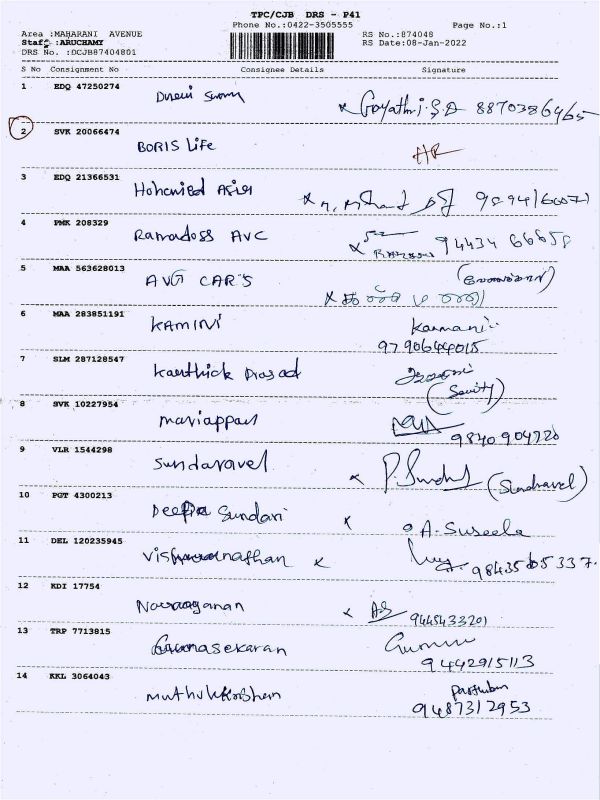 TPC/CJB DRS - P41
Phone No.:0422-3505555 Page No.:1
Area :MAHARANI AVENUE RS No.:874048
Staff :ARUCHAMY RS Date:08-Jan-2022
DRS No. :DCJB87404801
S No Consignment No Consignee Details Signature
1 EDQ 47250274 Gayathri.S.D 8870386465
2 SVK 20066474 BORIS Life
3 EDQ 21366531
4 PMK 208329 Ramadoss AVC 94434 66658
5 MAA 563628013 AVG CAR'S
6 MAA 283851191 KAMINI Kamani
9790644015
7 SLM 287128547 Karthick Prasad
8 SVK 10227954 mariappan
9840904720
9 VLR 1544298 Sundaravel (Sundravel)
10 PGT 4300213 Deepa Sundari A. Suseela
11 DEL 120235945 Vishwanathan 9843565337.
12 KDI 17754 9445433201
13 TRP 7713815 Gunasekaran
9442915113
14 KKL 3064043 Muthukrishnan
9487312953